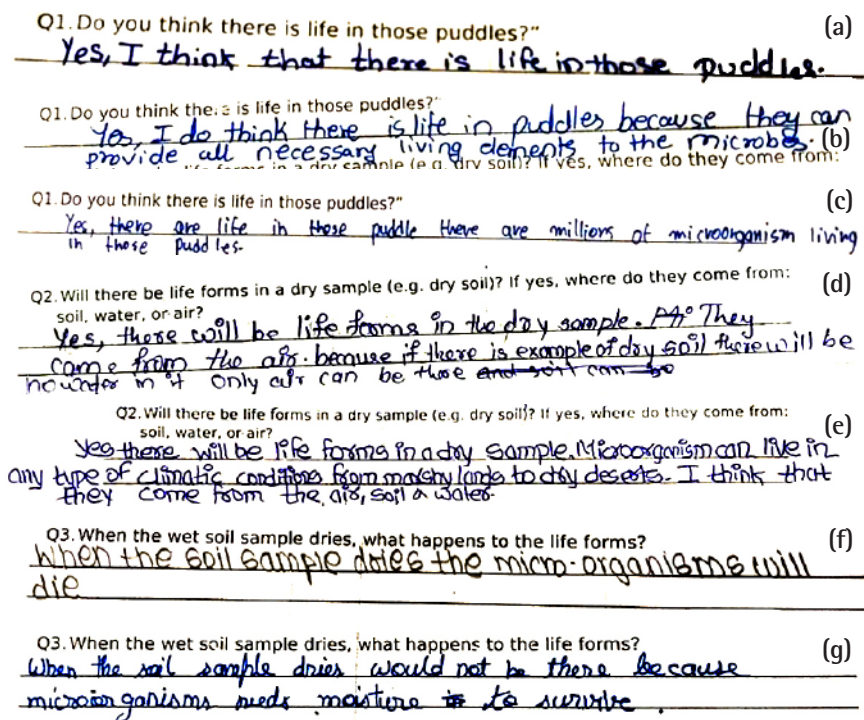 Q1. Do you think there is life in those puddles?" (a)
Yes, I think that there is life in those puddles.
Q1. Do you think there is life in those puddles?"
Yes, I do think there is life in puddles because they can
provide all necessary living elements to the microbes. (b)
in a dry sample (e.g. dry soil)? If yes, where do they come from:
Q1. Do you think there is life in those puddles?" (c)
Yes, there are life in those puddle there are millions of microorganism living
in those puddles.
Q2. Will there be life forms in a dry sample (e.g. dry soil)? If yes, where do they come from: (d)
soil, water, or air?
Yes, there will be life forms in the dry sample. They
came from the air. because if there is example of dry soil there will be
no water in it only air can be there and soil can be
Q2. Will there be life forms in a dry sample (e.g. dry soil)? If yes, where do they come from: (e)
soil, water, or air?
Yes there will be life forms in a dry sample. Microorganism can live in
any type of climatic conditions from marshy lands to dry deserts. I think that
they come from the air, soil a water.
Q3. When the wet soil sample dries, what happens to the life forms? (f)
When the soil sample dries the micro-organisms will
die
Q3. When the wet soil sample dries, what happens to the life forms? (g)
When the soil sample dries would not be there because
microorganisms needs moisture to survive.